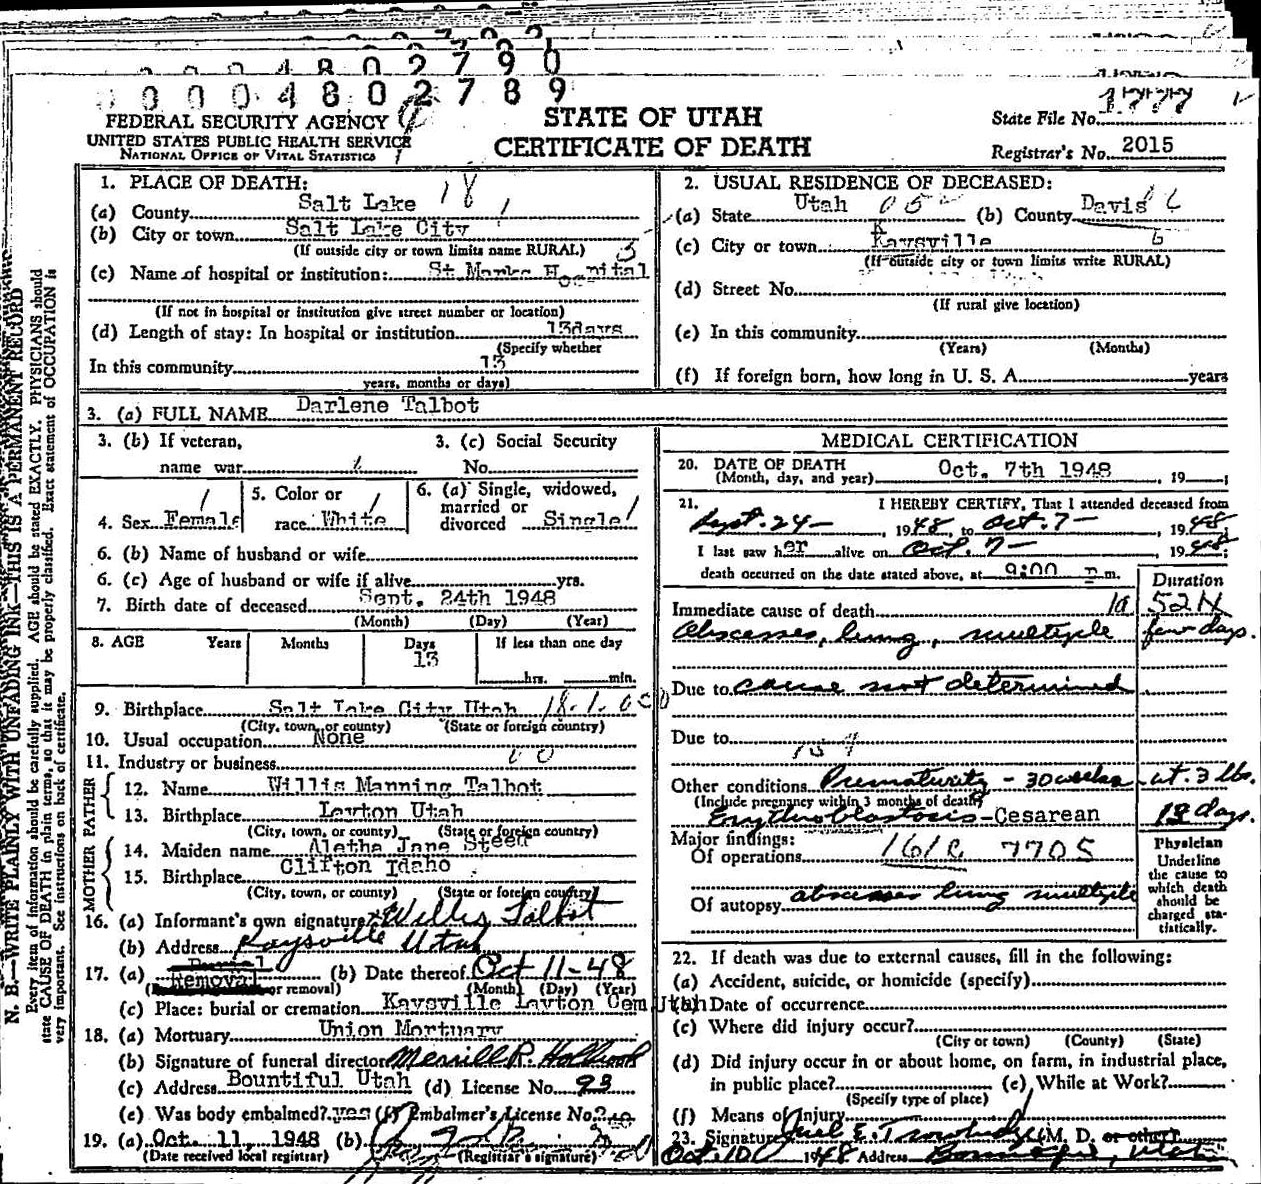 0 0 0 4 8 0 2 7 9 0
0 0 0 4 8 0 2 7 8 9
FEDERAL SECURITY AGENCY
UNITED STATES PUBLIC HEALTH SERVICE
NATIONAL OFFICE OF VITAL STATISTICS
STATE OF UTAH
CERTIFICATE OF DEATH
State File No. 1777
Registrar's No. 2015
N. B.—WRITE PLAINLY WITH UNFADING INK—THIS IS A PERMANENT RECORD
Every item of information should be carefully supplied. AGE should be stated EXACTLY. PHYSICIANS should
state CAUSE OF DEATH in plain terms, so that it may be properly classified. Exact statement of OCCUPATION is
very important. See instructions on back of certificate.
1. PLACE OF DEATH:
(a) County Salt Lake 18
(b) City or town Salt Lake City
(If outside city or town limits name RURAL) 3
(c) Name of hospital or institution: St Marks Hospital
(If not in hospital or institution give street number or location)
(d) Length of stay: In hospital or institution 13days
(Specify whether
In this community 13
years, months or days)
2. USUAL RESIDENCE OF DECEASED:
(a) State Utah 052 (b) County Davis 6
(c) City or town Kaysville 6
(If outside city or town limits write RURAL)
(d) Street No.
(If rural give location)
(e) In this community
(Years) (Months)
(f) If foreign born, how long in U. S. A. years
3. (a) FULL NAME Darlene Talbot
3. (b) If veteran, 3. (c) Social Security
name war No.
4. Sex Female 5. Color or race White 6. (a) Single, widowed, married or divorced Single
6. (b) Name of husband or wife
6. (c) Age of husband or wife if alive yrs.
7. Birth date of deceased Sept. 24th 1948
(Month) (Day) (Year)
8. AGE Years Months Days If less than one day
13
hrs. min.
9. Birthplace Salt Lake City Utah 18.1.050
(City, town, or county) (State or foreign country)
10. Usual occupation None
11. Industry or business
FATHER
12. Name Willis Manning Talbot
13. Birthplace Layton Utah
(City, town, or county) (State or foreign country)
MOTHER
14. Maiden name Aletha Jane Steed
15. Birthplace Clifton Idaho
(City, town, or county) (State or foreign country)
16. (a) Informant's own signature x Willis Talbot
(b) Address Kaysville Utah
17. (a) Removal (b) Date thereof Oct 11-48
or removal) (Month) (Day) (Year)
(c) Place: burial or cremation Kaysville Layton Cem Utah
18. (a) Mortuary Union Mortuary
(b) Signature of funeral director Merrill R. Holbrook
(c) Address Bountiful Utah (d) License No. 93
(e) Was body embalmed? yes (f) Embalmer's License No.
19. (a) Oct. 11, 1948 (b)
(Date received local registrar) (Registrar's signature)
MEDICAL CERTIFICATION
20. DATE OF DEATH Oct. 7th 1948, 19 ;
(Month, day, and year)
21. I HEREBY CERTIFY, That I attended deceased from
Sept. 24 - , 1948, to Oct. 7 - , 1948;
I last saw her alive on Oct. 7 - , 1948;
death occurred on the date stated above, at 9:00 p.m.
Duration
Immediate cause of death 1a 52H
Abscesses, lung, multiple few days.
Due to cause not determined
Due to
Other conditions Prematurity - 30 weeks - wt. 3 lbs.
(Include pregnancy within 3 months of death)
Erythroblastosis-Cesarean 13 days.
Major findings:
Of operations 161c 7705
Of autopsy abscesses lung multiple
Physician
Underline
the cause to
which death
should be
charged sta-
tistically.
22. If death was due to external causes, fill in the following:
(a) Accident, suicide, or homicide (specify)
(b) Date of occurrence
(c) Where did injury occur?
(City or town) (County) (State)
(d) Did injury occur in or about home, on farm, in industrial place,
in public place? (e) While at Work?
(Specify type of place)
(f) Means of Injury
23. Signature (M. D. or other)
Oct 10 1948 Address Utah